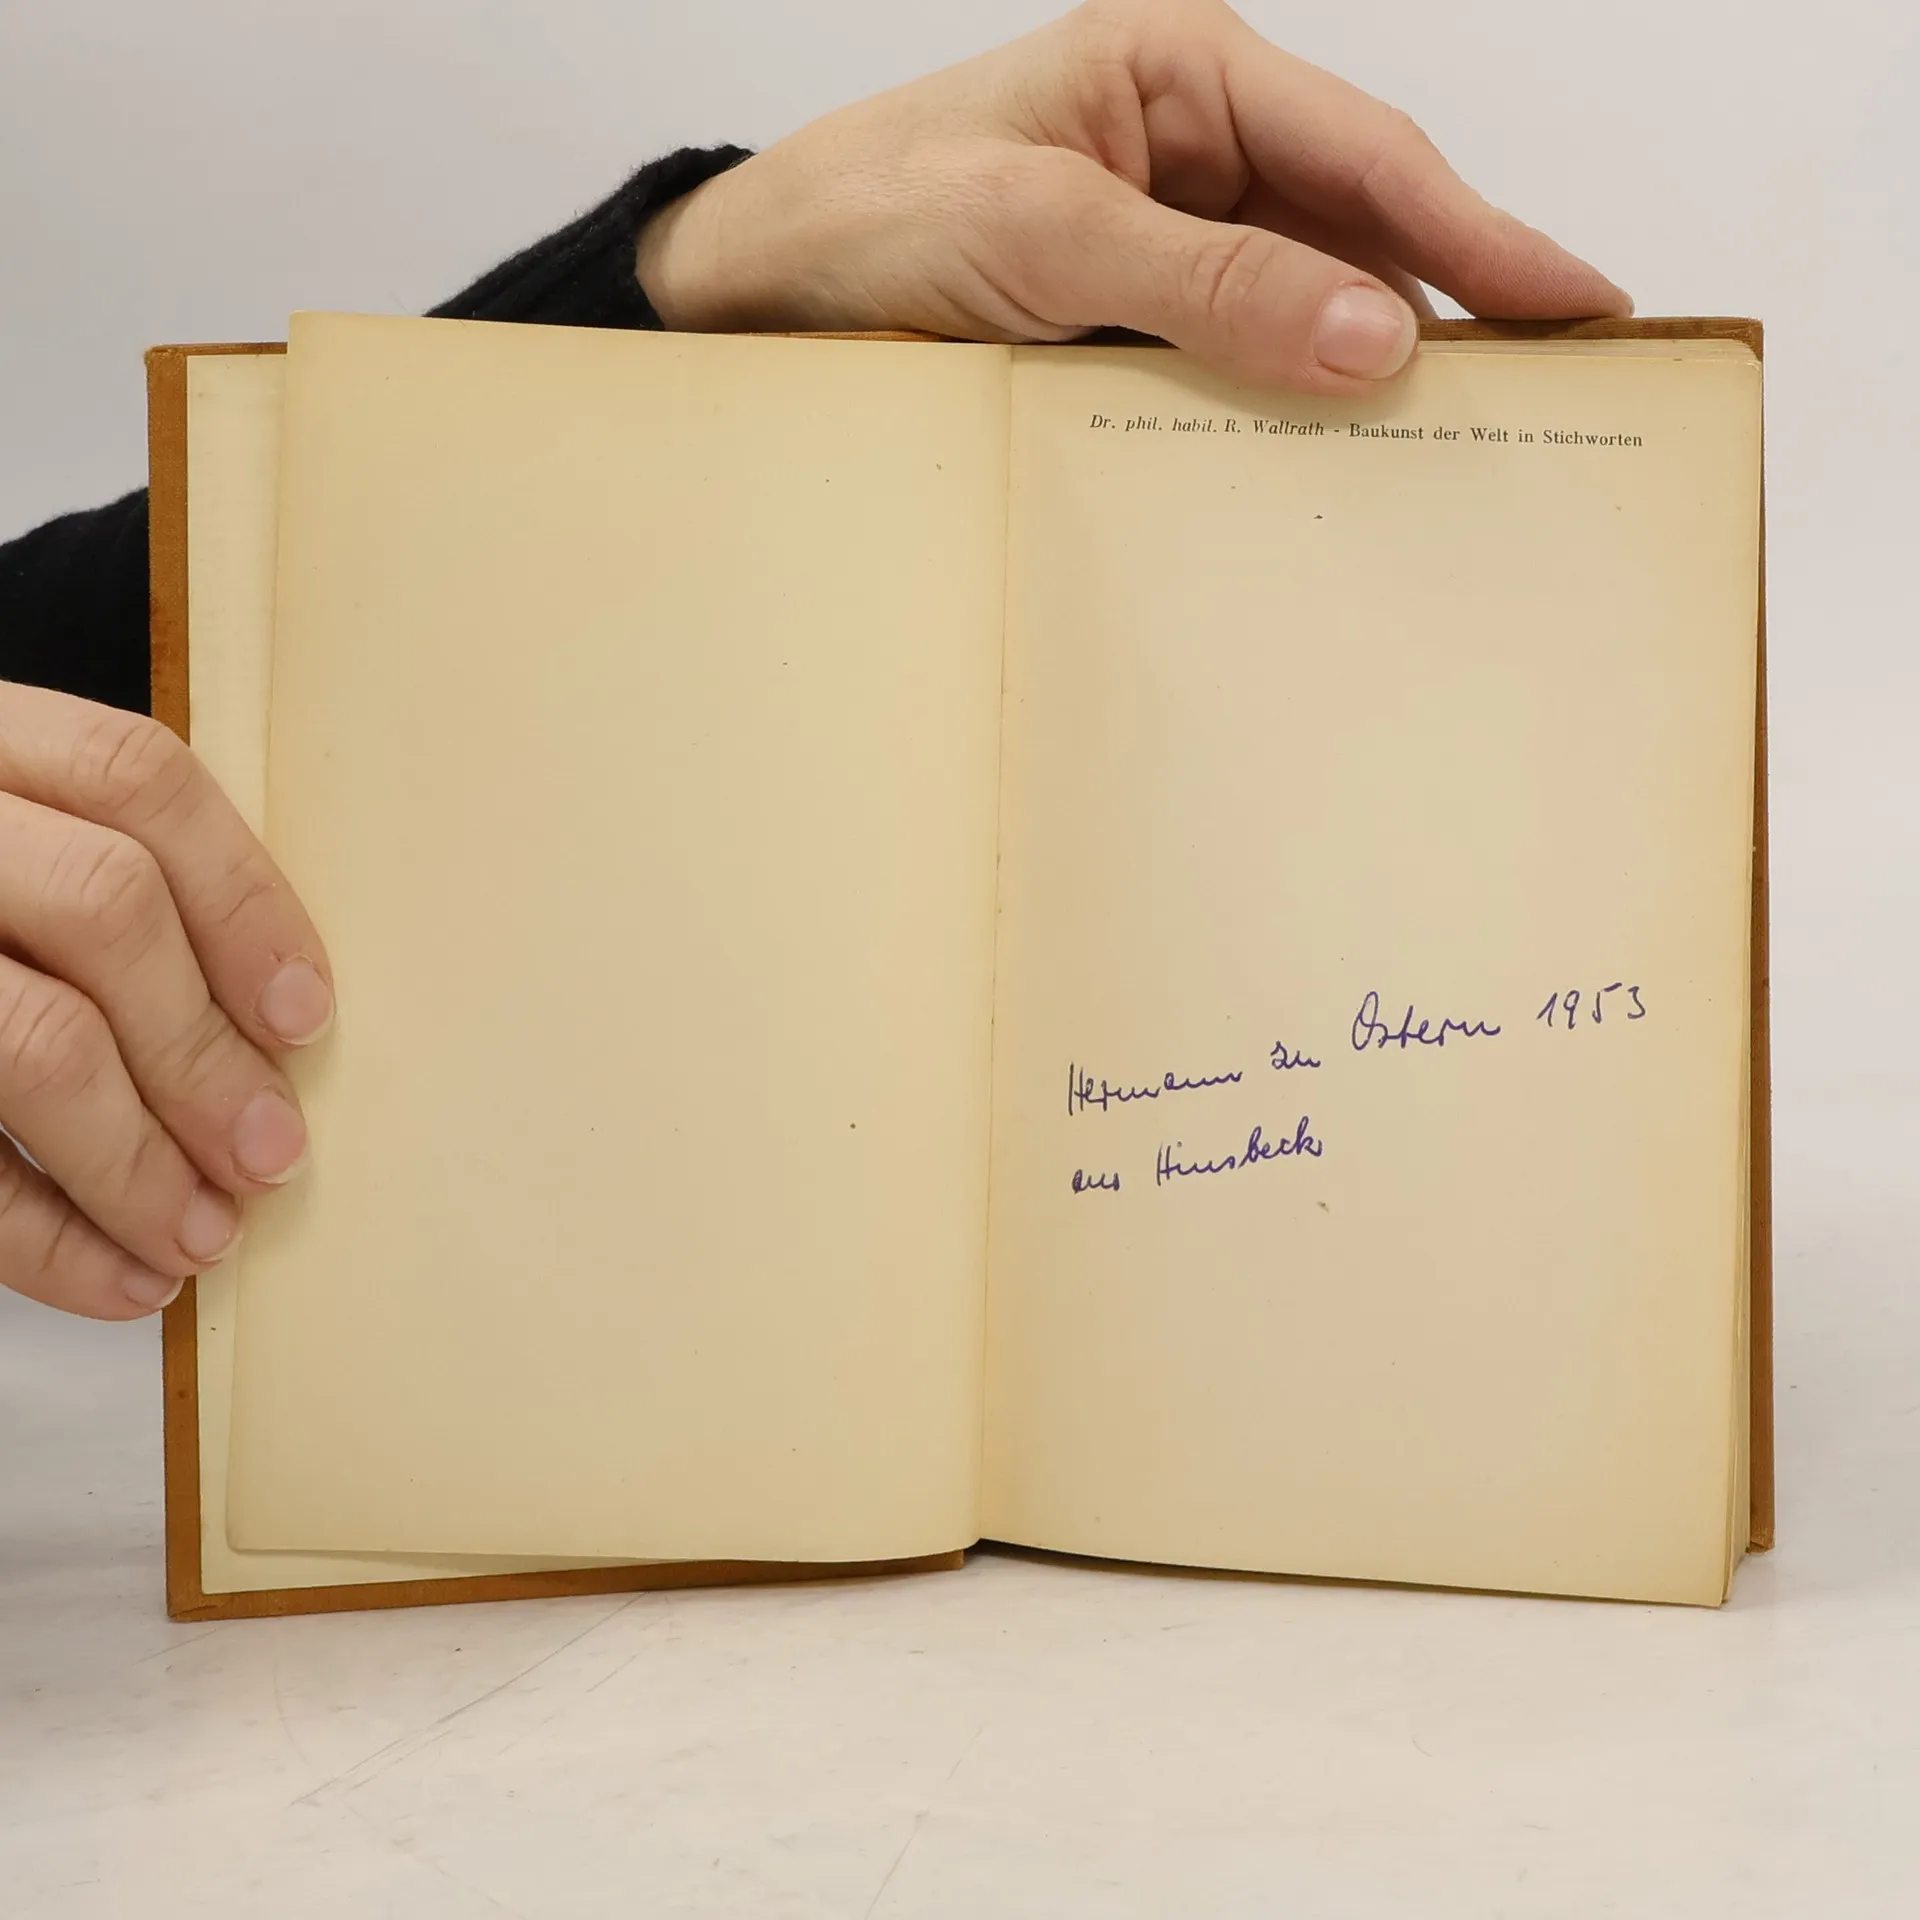 Dr. phil. habil. R. Wallrath - Baukunst der Welt in Stichworten
Hermann zu Ostern 1953
aus Hinsbeck